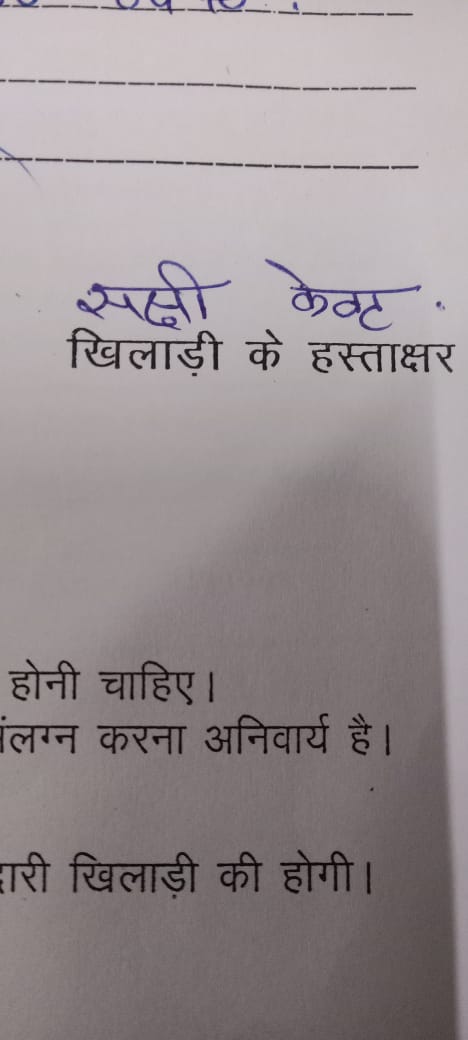 सक्षी केवट .
खिलाड़ी के हस्ताक्षर
होनी चाहिए।
संलग्न करना अनिवार्य है।
खिलाड़ी की होगी।